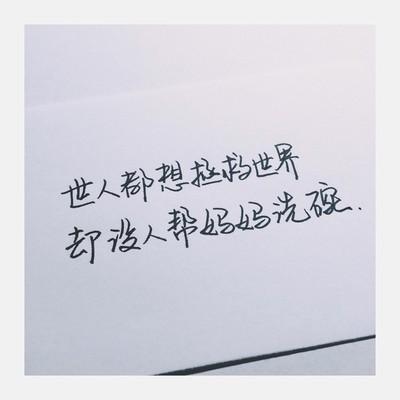 世人都想拯救世界
却没人帮妈妈洗碗.